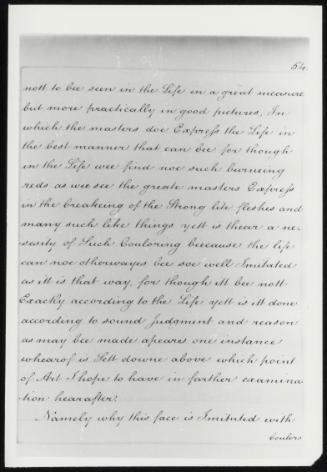 54.
nott to bee seen in the Life in a great measure
but more practically in good pictures, In
which the masters doe Express the Life in
the best manner that can bee for though
in the Life wee find noe such burneing
reds as we see the greate masters Express
in the breakeing of the Strong lite fleshes and
many such like things yett is thear a ne-
cesity of Such Couloring beecause the life
can noe otherwayes bee soe well Imitated
as itt is that way, for though itt bee nott
Exactly according to the Life yett is itt done
according to sound Judgment and reason
as may bee made apeare one instance
whearof is Sett downe above which point
of Art I hope to have in farther examina-
tion hearafter.
Namely why this face is Imitated with
Coulors